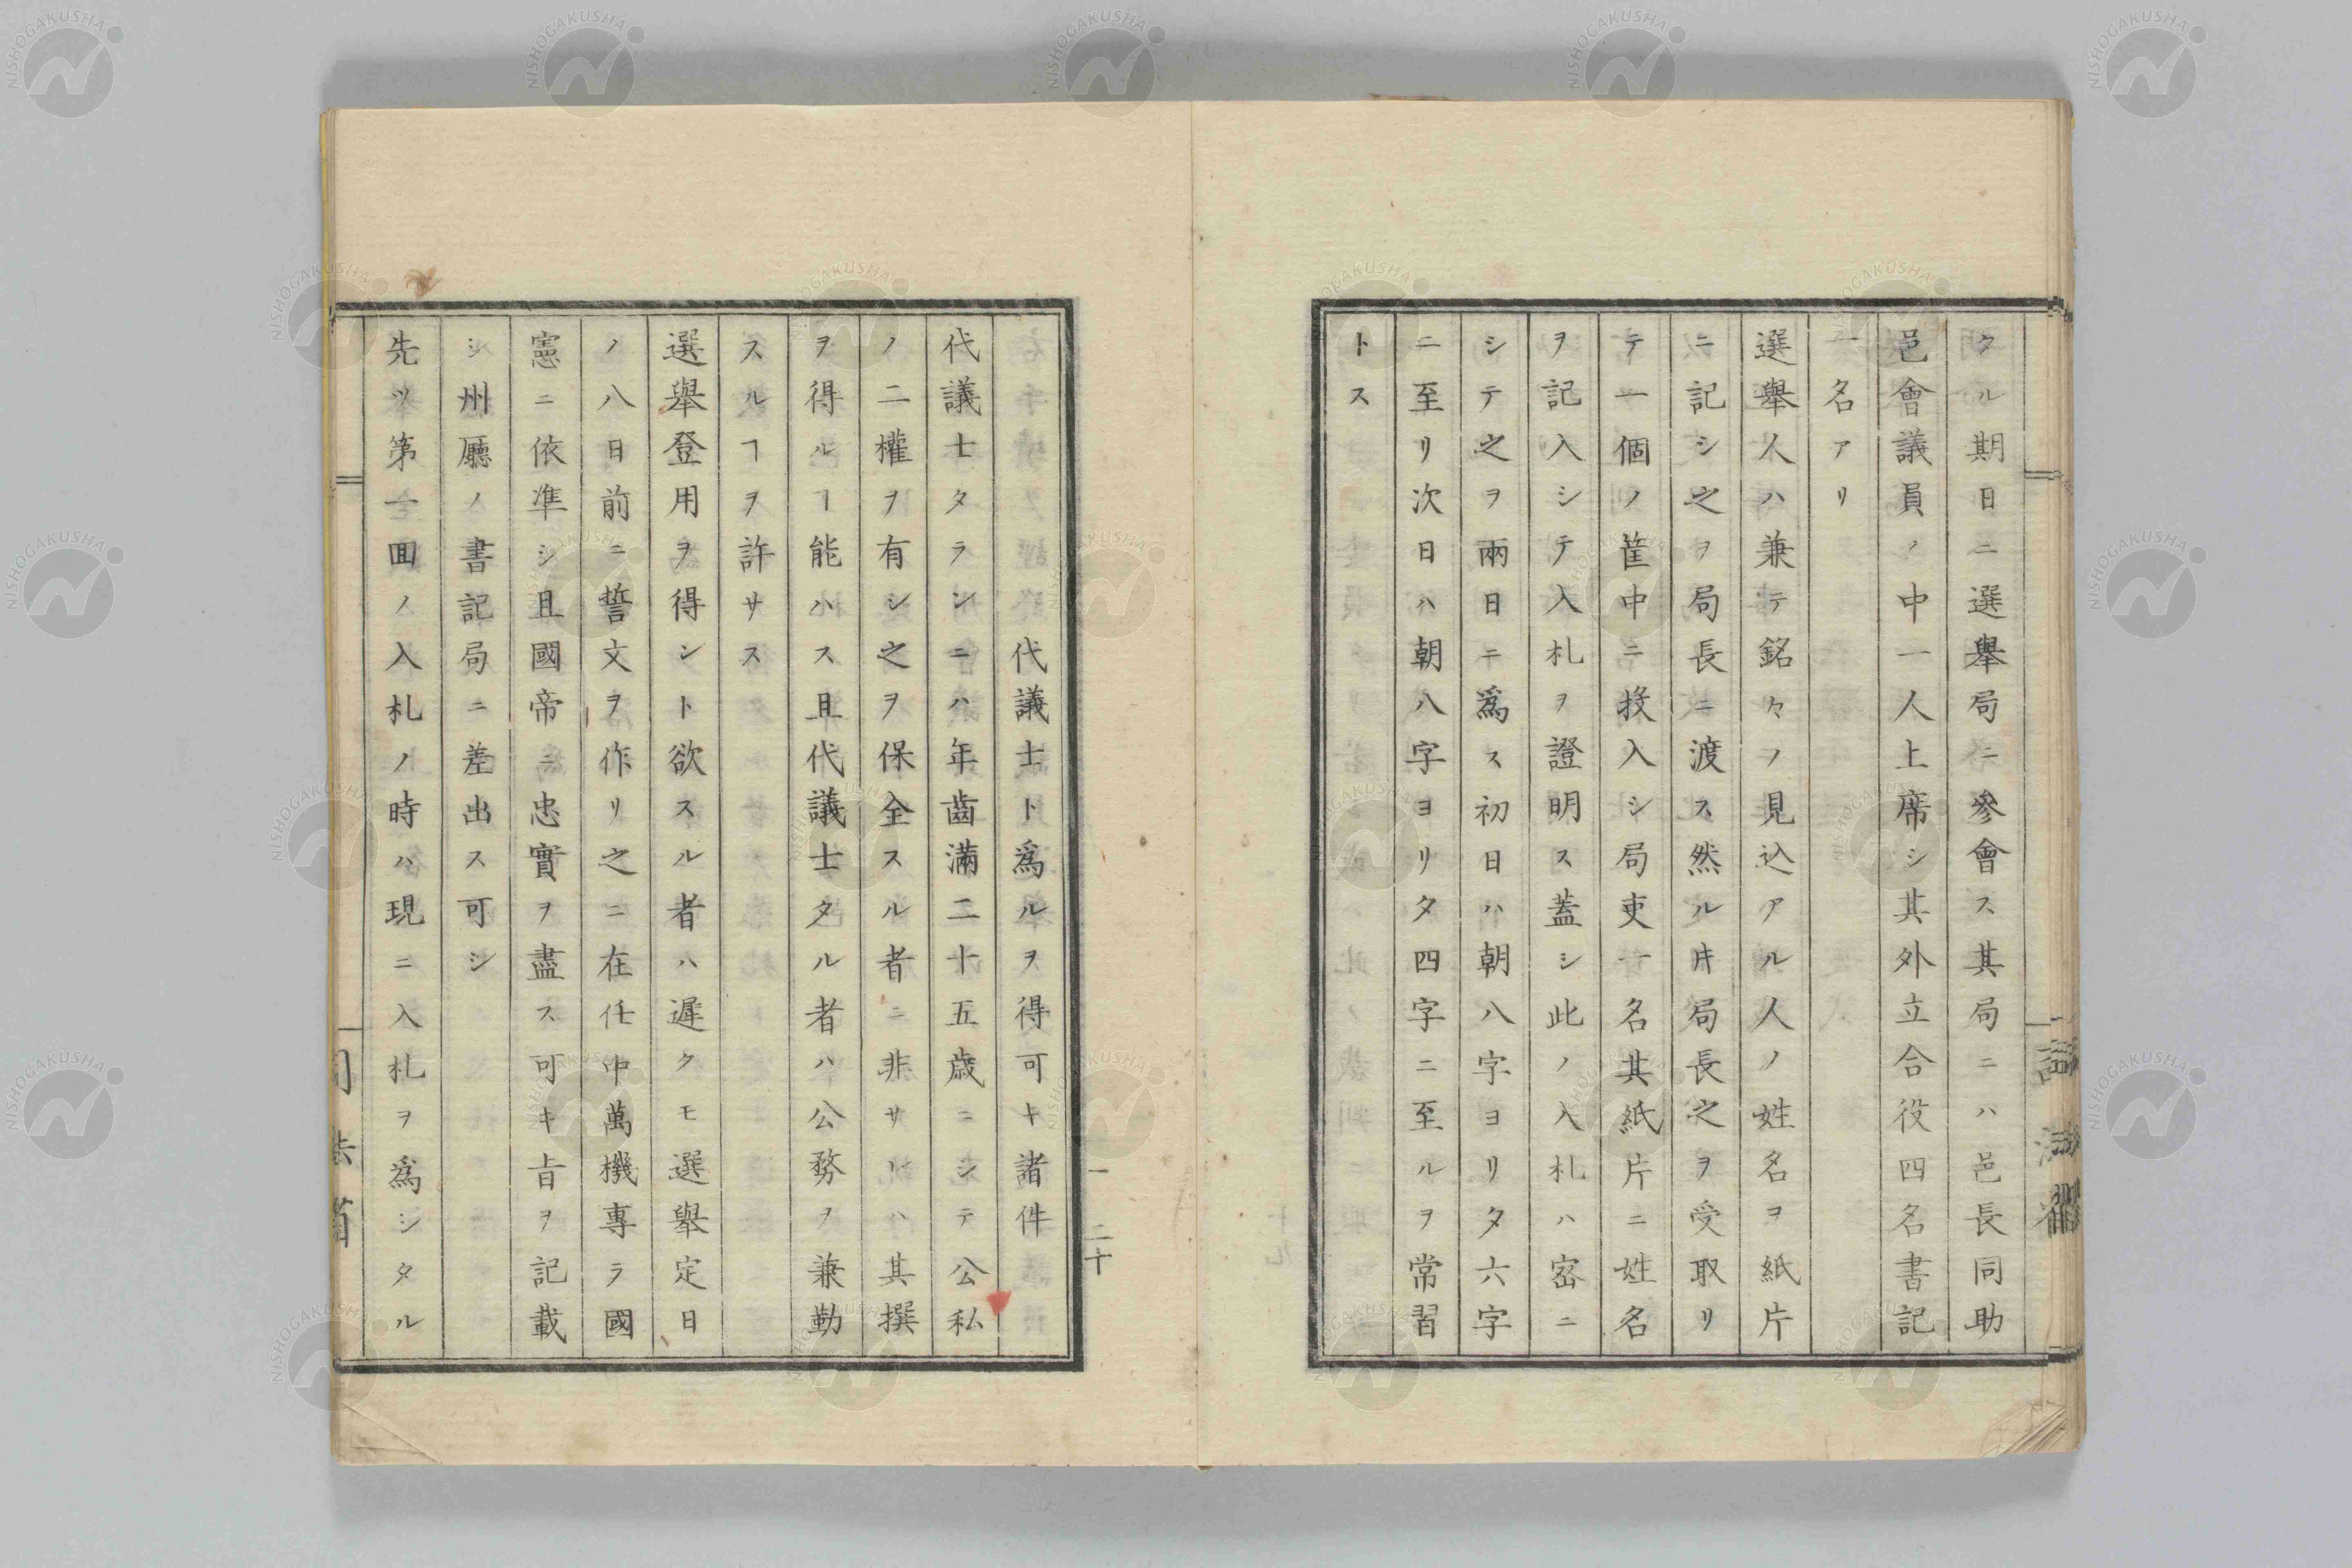 タル期日ニ選舉局ニ參會ス其局ニハ邑長同助
邑會議員ノ中一人上席シ其外立合役四名書記
一名アリ
選舉人ハ兼テ銘々ノ見込アル人ノ姓名ヲ紙片
ニ記シ之ヲ局長ニ渡ス然ル𪜈局長之ヲ受取リ
テ一個ノ筐中ニ投入シ局吏一名其紙片ニ姓名
ヲ記入シテ入札ヲ證明ス蓋シ此ノ入札ハ密ニ
シテ之ヲ兩日ニ爲ス初日ハ朝八字ヨリ夕六字
ニ至リ次日ハ朝八字ヨリ夕四字ニ至ルヲ常習
トス
代議士ト爲ルヲ得可キ諸件
代議士タランニハ年齒滿二十五歳ニシテ公私
ノ二權ヲ有シ之ヲ保全スル者ニ非サレハ其撰
ヲ得ルヿ能ハス且代議士タル者ハ公務ヲ兼勤
スルヿヲ許サス
選舉登用ヲ得ント欲スル者ハ遲クモ選舉定日
ノ八日前ニ誓文ヲ作リ之ニ在任中萬機專ラ國
憲ニ依準シ且國帝ニ忠實ヲ盡ス可キ旨ヲ記載
シ州廳ノ書記局ニ差出ス可シ
先ツ第一回ノ入札ノ時ハ現ニ入札ヲ爲シタル
一 二十
NISHOGAKUSHA